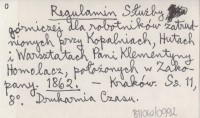 o
Regulamin Służby
górniczej dla robotników zatrud
nionych przy Kopalniach, Hutach
i Warsztatach Pani Klementyny
Homolacz, położonych w Zako-
pany. 1862. – Kraków. Ss. 11,
8°. Drukarnia Czasu.